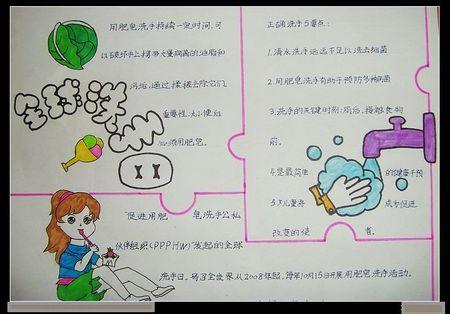 用肥皂洗手持续一定时间,可
以破坏手上携带大量病菌的油脂和
污垢,通过揉搓去除它们。
重要性:大小便后
必须用肥皂。
全球洗
正确洗手5要点:
1.清水洗手远远不足以洗去细菌
2.用肥皂洗手有助于预防多种病菌
3.洗手的关键时刻:厕后,接触食物
前。
4.是最简单 的健康干预
5.儿童亦 成为促进
改变的使 者。
"促进用肥 皂洗手公私
伙伴组织(PPPHW)"发起的全球
洗手日。号召全世界从2008年起,每年10月15日开展用肥皂洗手活动。